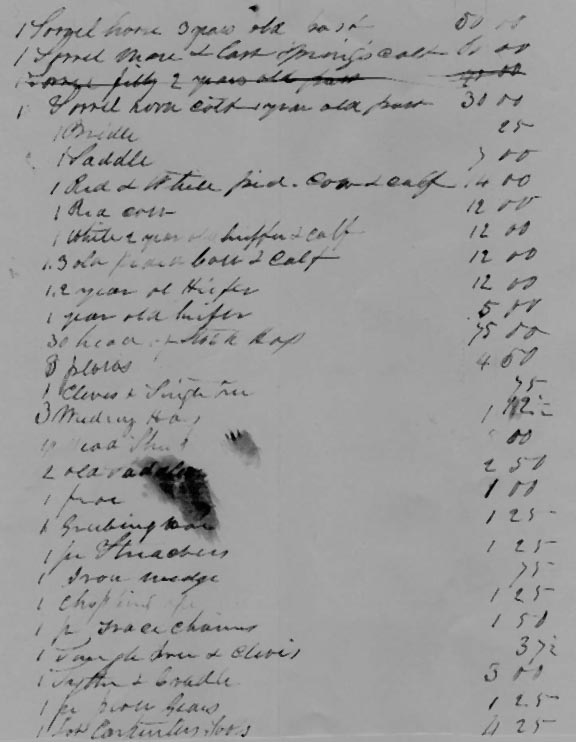 1 Sorrel horse 3 years old past 50 00
1 Sorrel Mare & last springs calt 60 00
1 Sorrel filly 2 years old past 00
1 Sorrel horse colt 1 year old past 30 00
1 Bridle 25
1 Saddle 7 00
1 Red & White pied. Cow & calf 14 00
1 Red cow 12 00
1 White 2 year old heiffer & calf 12 00
1. 3 old years Cow & Calf 12 00
1. 2 year ol Hiefer 12 00
1 year old heifer 5 00
30 head of Stock Hogs 75 00
8 plows 4 50
1 Clives & Single tree 75
3 Weeding Hoes 1 12½
head Sheep 00
2 old saddles 2 50
1 froe 1 00
1 Grubing hoe 1 25
1 pr Streachers 1 25
1 Iron wedge 75
1 Chopping axe 1 25
1 pr Trace Chains 1 50
1 Single tree & Clivis 37½
1 Sythe & Cradle 3 00
1 pr plow Gears 1 25
1 Lot Carpenters tools 4 25